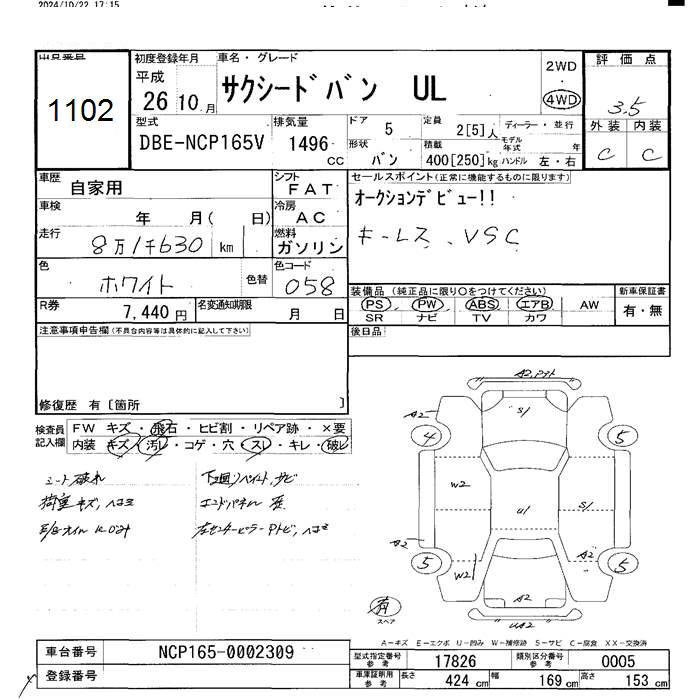 2024/10/22 17:15
出品番号
1102
初度登録年月
平成
26年10.月
車名・グレード
サクシードバン UL
2WD
・
4WD
評価点
3.5
外装 内装
C C
型式
DBE-NCP165V
排気量
1496
CC
ドア 5
形状 バン
定員 2[5]人
積載 400[250]kg
ディーラー・並行
モデル年式 年
ハンドル 左・右
車歴 自家用
シフト FAT
車検 年 月( 日)
冷房 AC
走行 8万1千630 km
燃料 ガソリン
色 ホワイト 色替
色コード 058
R券 7,440円
名変通知期限 月 日
セールスポイント(正常に機能するものに限ります)
オークションデビュー!!
キーレス、VSC
装備品(純正品に限り○をつけてください)
PS PW ABS エアB AW
SR ナビ TV カワ
新車保証書
有・無
後日品
注意事項申告欄(不具合内容等は具体的に記入して下さい)
修復歴 有〔箇所 〕
検査員記入欄
FW キズ・飛石・ヒビ割・リペア跡・×要
内装 キズ・汚レ・コゲ・穴・スレ・キレ・破レ
シート破れ
荷室キズ、ヘコミ
下回りペイント、サビ
エンドパネル
左センターピラーPトビ、ヘコミ
A2
A2
S1
4
5
W2
U1
S1
A2
A2
5
5
W2
A2
UA2
有
スペア
A-キズ E-エクボ U-凹み W-補修跡 S-サビ C-腐食 XX-交換済
車台番号 NCP165-0002309
登録番号
型式指定番号参考 17826
類別区分番号参考 0005
車庫証明用参考 長さ 424 cm 幅 169 cm 高さ 153 cm